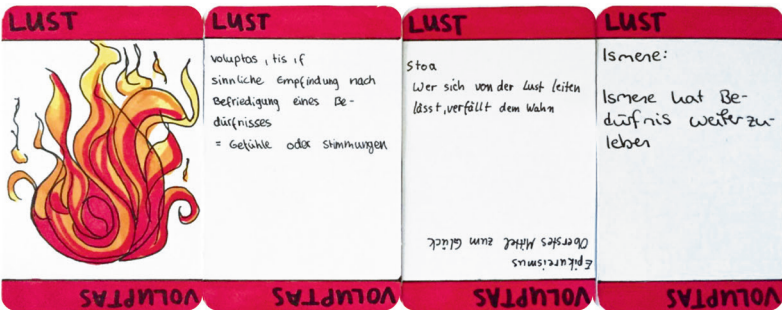 LUST
VOLUPTAS
LUST
voluptas, tis, f
sinnliche Empfindung nach
Befriedigung eines Be-
dürfnisses
= Gefühle oder Stimmungen
VOLUPTAS
LUST
Stoa
Wer sich von der Lust leiten
lässt, verfällt dem Wahn
Epikureismus
Oberstes Mittel zum Glück
VOLUPTAS
LUST
Ismene:
Ismene hat Be-
dürfnis weiterzu-
leben
VOLUPTAS